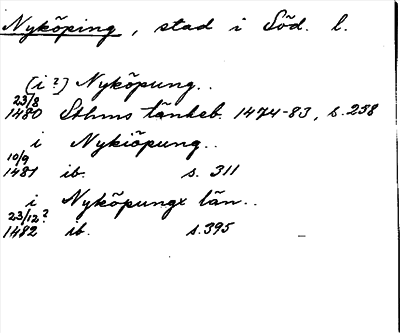 Nyköping, stad i Söd. l.
(i ?) Nyköpung..
23/8
1480 Sthms tänkeb. 1474-83, s. 258
i Nykiöpung..
10/9
1481 ib. s. 311
i Nyköpungx län..
23/12 ?
1482 ib. s. 395